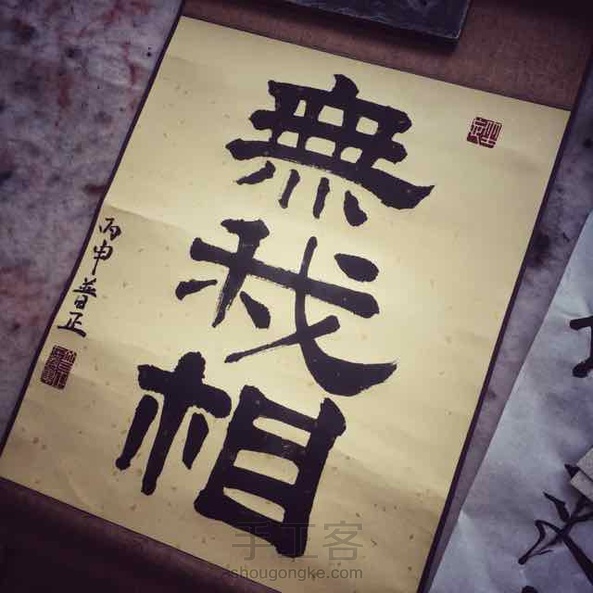 無我相
丙申普正
手工客
shougongke.com